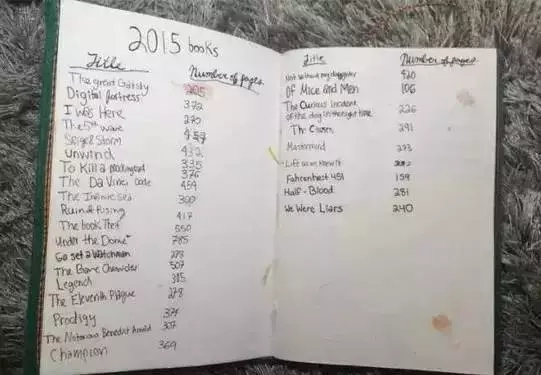 2015 books
Title Number of pages
The great Gatsby 205
Digital fortress 372
I was Here 270
The 5th wave 457
Seige & Storm
Unwind 432
To Kill a Mockingbird 335
376
The Da Vinci Code 454
The Infinite Sea 300
Ruin & Rising 417
The book Thief 550
Under the Dome 785
Go set a Watchman 278
The Bane Chronicles 507
Legend 315
The Eleventh Plague 278
Prodigy 374
The Notorious Benedict Arnold 307
Champion 369
Title Number of pages
Not without my daughter 420
Of Mice and Men 106
The Curious Incident
of the dog in the night time 226
The Chosen 291
Mastermind 293
Life as we knew it
Fahrenheit 451 159
Half-Blood 281
We Were Liars 240